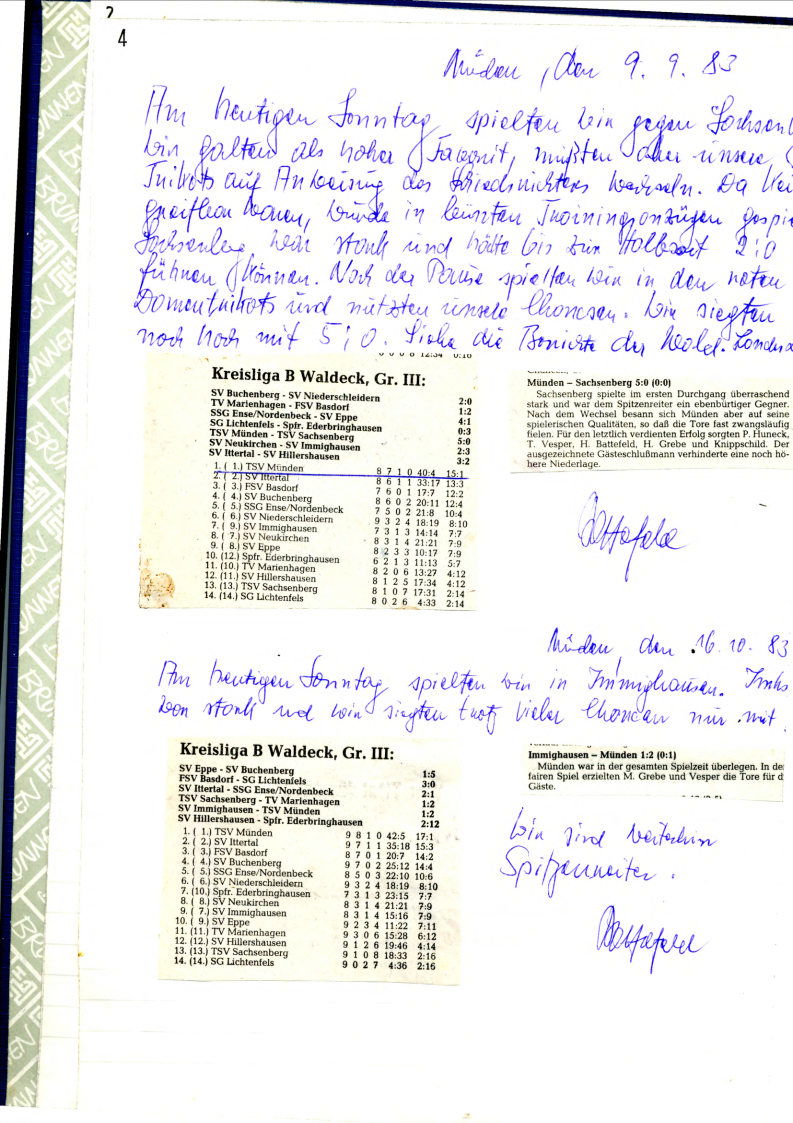 2
4
Müden, den 9. 9. 83
Am heutigen Sonntag spielten wir gegen Sachsenb
Wir galten als hoher Favorit, mußten aber unsere
Trikots auf Anweisung des Schiedsrichters wechseln. Da kei
greifbar waren, wurde in bunten Trainingsanzügen gespie
Sachsenberg war stark und hätte bis zur Halbzeit 2:0
führen können. Nach der Pause spielten wir in den roten
Damentrikots und nützten unsere Chancen. Wir siegten
noch hoch mit 5:0. Siehe die Berichte der Wald. Landes
0 0 0 8 12:34 0:16
Kreisliga B Waldeck, Gr. III:
SV Buchenberg - SV Niederschleidern 2:0
TV Marienhagen - FSV Basdorf 1:2
SSG Ense/Nordenbeck - SV Eppe 4:1
SG Lichtenfels - Spfr. Ederbringhausen 0:3
TSV Münden - TSV Sachsenberg 5:0
SV Neukirchen - SV Immighausen 2:3
SV Ittertal - SV Hillershausen 3:2
1. ( 1.) TSV Münden 8 7 1 0 40:4 15:1
2. ( 2.) SV Ittertal 8 6 1 1 33:17 13:3
3. ( 3.) FSV Basdorf 7 6 0 1 17:7 12:2
4. ( 4.) SV Buchenberg 8 6 0 2 20:11 12:4
5. ( 5.) SSG Ense/Nordenbeck 7 5 0 2 21:8 10:4
6. ( 6.) SV Niederschleidern 9 3 2 4 18:19 8:10
7. ( 9.) SV Immighausen 7 3 1 3 14:14 7:7
8. ( 7.) SV Neukirchen 8 3 1 4 21:21 7:9
9. ( 8.) SV Eppe 8 2 3 3 10:17 7:9
10. (12.) Spfr. Ederbringhausen 6 2 1 3 11:13 5:7
11. (10.) TV Marienhagen 8 2 0 6 13:27 4:12
12. (11.) SV Hillershausen 8 1 2 5 17:34 4:12
13. (13.) TSV Sachsenberg 8 1 0 7 17:31 2:14
14. (14.) SG Lichtenfels 8 0 2 6 4:33 2:14
Münden – Sachsenberg 5:0 (0:0)
Sachsenberg spielte im ersten Durchgang überraschend
stark und war dem Spitzenreiter ein ebenbürtiger Gegner.
Nach dem Wechsel besann sich Münden aber auf seine
spielerischen Qualitäten, so daß die Tore fast zwangsläufig
fielen. Für den letztlich verdienten Erfolg sorgten P. Huneck,
T. Vesper, H. Battefeld, H. Grebe und Knippschild. Der
ausgezeichnete Gästeschlußmann verhinderte eine noch hö-
here Niederlage.
Battefeld
Müden, den 16. 10. 83
Am heutigen Sonntag spielten wir in Immighausen. Imhs
war stark und wir siegten trotz vieler Chancen nur mit
Kreisliga B Waldeck, Gr. III:
SV Eppe - SV Buchenberg 1:5
FSV Basdorf - SG Lichtenfels 3:0
SV Ittertal - SSG Ense/Nordenbeck 2:1
TSV Sachsenberg - TV Marienhagen 1:2
SV Immighausen - TSV Münden 1:2
SV Hillershausen - Spfr. Ederbringhausen 2:12
1. ( 1.) TSV Münden 9 8 1 0 42:5 17:1
2. ( 2.) SV Ittertal 9 7 1 1 35:18 15:3
3. ( 3.) FSV Basdorf 8 7 0 1 20:7 14:2
4. ( 4.) SV Buchenberg 9 7 0 2 25:12 14:4
5. ( 5.) SSG Ense/Nordenbeck 8 5 0 3 22:10 10:6
6. ( 6.) SV Niederschleidern 9 3 2 4 18:19 8:10
7. (10.) Spfr. Ederbringhausen 7 3 1 3 23:15 7:7
8. ( 8.) SV Neukirchen 8 3 1 4 21:21 7:9
9. ( 7.) SV Immighausen 8 3 1 4 15:16 7:9
10. ( 9.) SV Eppe 9 2 3 4 11:22 7:11
11. (11.) TV Marienhagen 9 3 0 6 15:28 6:12
12. (12.) SV Hillershausen 9 1 2 6 19:46 4:14
13. (13.) TSV Sachsenberg 9 1 0 8 18:33 2:16
14. (14.) SG Lichtenfels 9 0 2 7 4:36 2:16
Immighausen – Münden 1:2 (0:1)
Münden war in der gesamten Spielzeit überlegen. In de
fairen Spiel erzielten M. Grebe und Vesper die Tore für d
Gäste.
Wir sind weiterhin
Spitzenreiter.
Battefeld
BRUNNEN